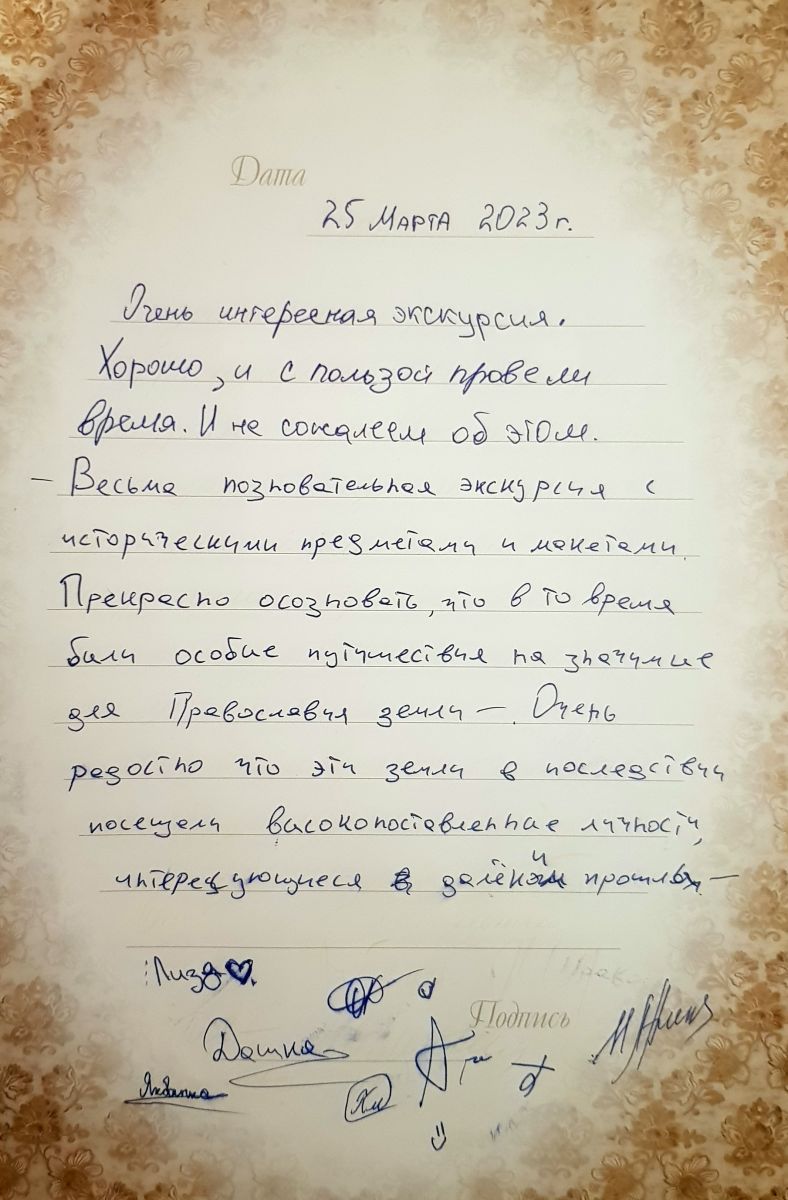 Дата
25 Марта 2023г.
Очень интересная экскурсия.
Хорошо, и с пользой провели
время. И не сожалеем об этом.
– Весьма позновательная экскурсия с
историческими предметами и макетами.
Прекрасно осозновать, что в то время
были особые путишествия на значимые
для Православия земли –. Очень
редостно что эти земли в последствии
посещели высокопоставленные личности,
интересующиеся
Лиза ♥.
Подпись
Дашка